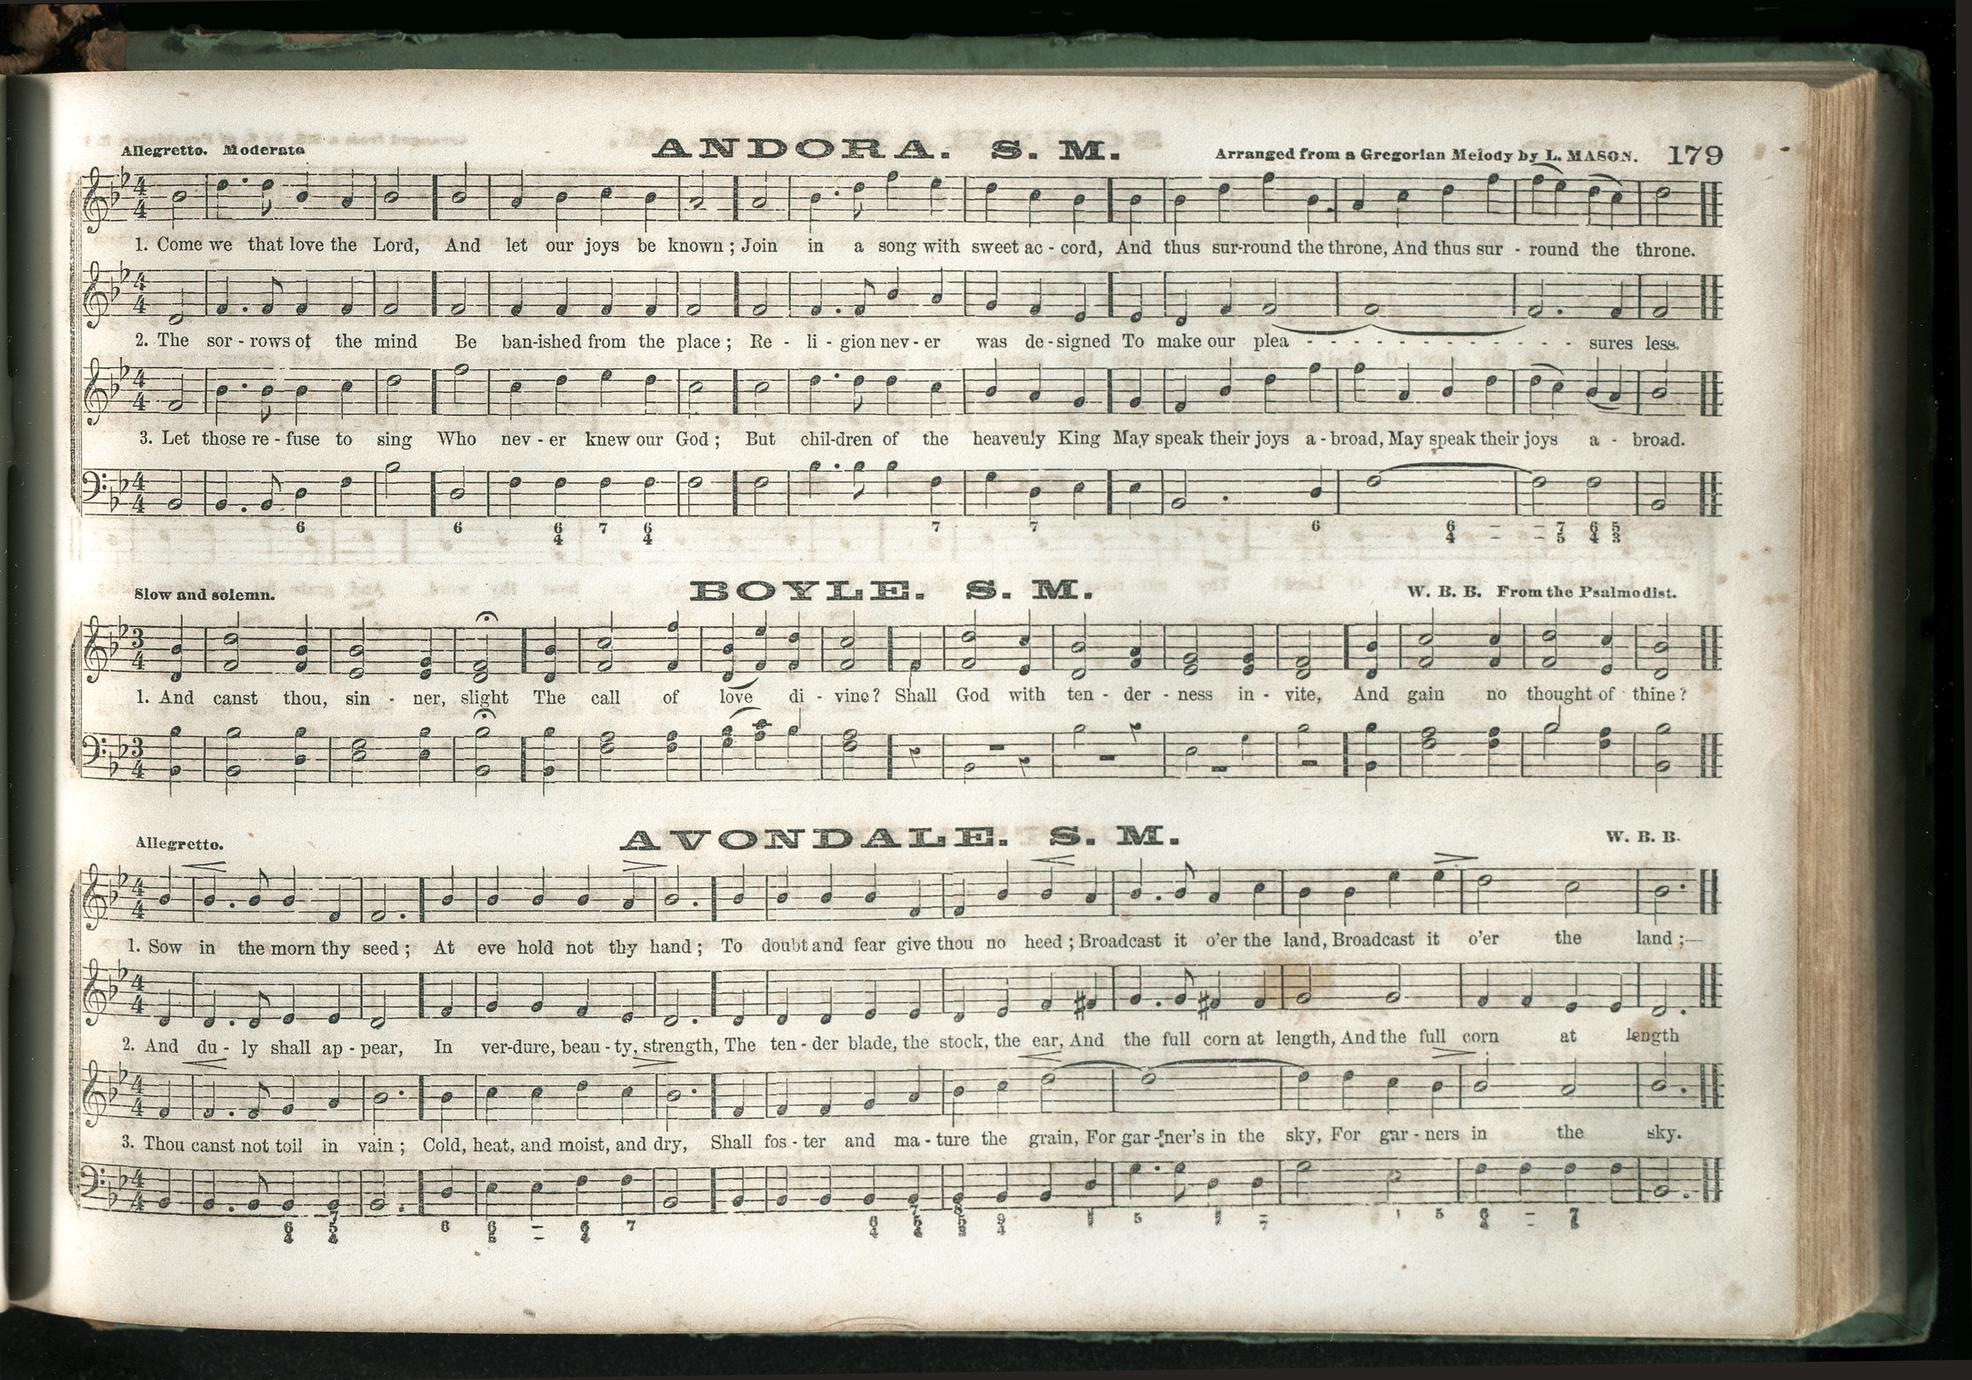 Allegretto. Moderato ANDORA. S. M. Arranged from a Gregorian Melody by L. MASON. 179
1. Come we that love the Lord, And let our joys be known ; Join in a song with sweet ac - cord, And thus sur-round the throne, And thus sur - round the throne.
2. The sor - rows of the mind Be ban-ished from the place ; Re - li - gion nev - er was de - signed To make our plea - - - - - - - - - - - - - sures less.
3. Let those re - fuse to sing Who nev - er knew our God ; But chil-dren of the heavenly King May speak their joys a - broad, May speak their joys a - broad.
6 6 6 7 6 7 7 6 6 – – 7 6 5
4 4 4 – – 5 4 3
Slow and solemn. BOYLE. S. M. W. B. B. From the Psalmodist.
3
4
1. And canst thou, sin - ner, slight The call of love di - vine ? Shall God with ten - der - ness in - vite, And gain no thought of thine ?
3
4
Allegretto. AVONDALE. S. M. W. B. B.
1. Sow in the morn thy seed ; At eve hold not thy hand ; To doubt and fear give thou no heed ; Broadcast it o'er the land, Broadcast it o'er the land ;—
2. And du - ly shall ap - pear, In ver-dure, beau - ty, strength, The ten - der blade, the stock, the ear, And the full corn at length, And the full corn at length
3. Thou canst not toil in vain ; Cold, heat, and moist, and dry, Shall fos - ter and ma - ture the grain, For gar - ner's in the sky, For gar - ners in the sky.